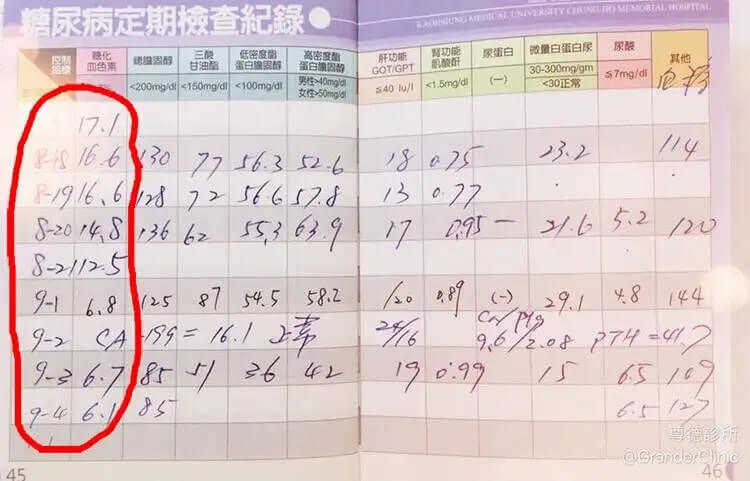 糖尿病定期檢查紀錄
KAOHSIUNG MEDICAL UNIVERSITY CHUNG-HO MEMORIAL HOSPITAL
控制指標 糖化血色素 總膽固醇 三酸甘油酯 低密度酯蛋白膽固醇 高密度酯蛋白膽固醇 肝功能GOT/GPT 腎功能肌酸酐 尿蛋白 微量白蛋白尿 尿酸 其他
<200mg/dl <150mg/dl <100mg/dl 男性>40mg/dl 女性>50mg/dl ≦40 Iu/l <1.5mg/dl (—) 30-300mg/gm <30正常 ≦7mg/dl
17.1
8-18 16.6 130 77 56.3 52.6 18 0.75 23.2 114
8-19 16.6 128 72 56.6 57.8 13 0.77
8-20 14.8 136 62 55.3 63.9 17 0.95 — 21.6 5.2 120
8-21 12.5
9-1 6.8 125 87 54.5 58.2 /20 0.89 (-) 29.1 4.8 144
9-2 CA-199 = 16.1 正常 24/16 Ca/Mg 9.6/2.08 PTH=41.7
9-3 6.7 85 51 36 42 19 0.99 15 6.5 109
9-4 6.1 85 6.5 127
尊德診所
@GranderClinic
45
46